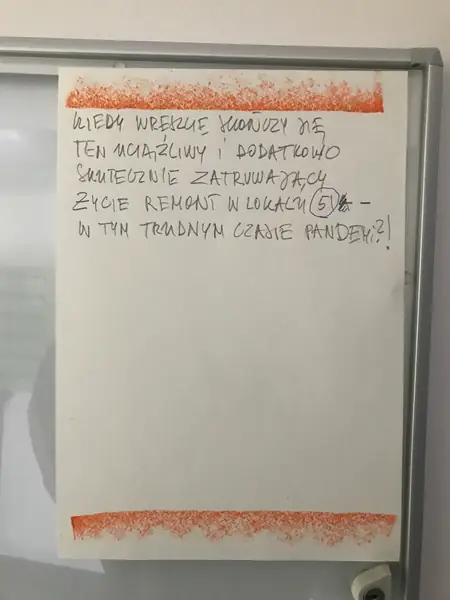 KIEDY WRESZCIE SKOŃCZY SIĘ
TEN UCIĄŻLIWY I DODATKOWO
SKUTECZNIE ZATRUWAJĄCY
ŻYCIE REMONT W LOKALU 51 –
W TYM TRUDNYM CZASIE PANDEMI?!